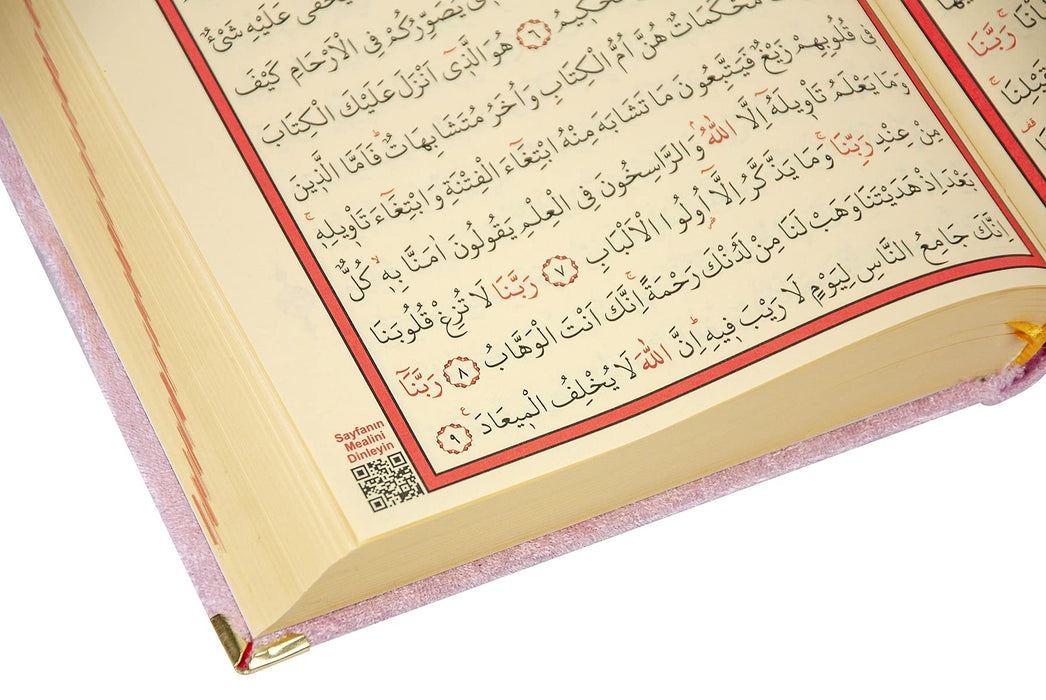 يَخْفٰى عَلَيْهِ شَيْءٌ
يُصَوِّرُكُمْ فِي الْاَرْحَامِ كَيْفَ
الْحَكِيمُ ﴿٦﴾ هُوَ الَّذٖٓي اَنْزَلَ عَلَيْكَ الْكِتَابَ
مُحْكَمَاتٌ هُنَّ اُمُّ الْكِتَابِ وَاُخَرُ مُتَشَابِهَاتٌۜ فَاَمَّا الَّذٖينَ
فٖي قُلُوبِهِمْ زَيْغٌ فَيَتَّبِعُونَ مَا تَشَابَهَ مِنْهُ ابْتِغَٓاءَ الْفِتْنَةِ وَابْتِغَٓاءَ تَأْوٖيلِهٖۚ
وَمَا يَعْلَمُ تَأْوٖيلَهُٓ اِلَّا اللّٰهُۢ وَالرَّاسِخُونَ فِي الْعِلْمِ يَقُولُونَ اٰمَنَّا بِهٖۙ كُلٌّ
مِنْ عِنْدِ رَبِّنَاۚ وَمَا يَذَّكَّرُ اِلَّٓا اُولُوا الْاَلْبَابِ ﴿٧﴾ رَبَّنَا لَا تُزِغْ قُلُوبَنَا
بَعْدَ اِذْ هَدَيْتَنَا وَهَبْ لَنَا مِنْ لَدُنْكَ رَحْمَةًۚ اِنَّكَ اَنْتَ الْوَهَّابُ ﴿٨﴾ رَبَّنَٓا
اِنَّكَ جَامِعُ النَّاسِ لِيَوْمٍ لَا رَيْبَ فٖيهِۜ اِنَّ اللّٰهَ لَا يُخْلِفُ الْمٖيعَادَ ﴿٩﴾
Sayfanın
Mealini
Dinleyin
رَبَّنَا
قَبْلِنَاۚ